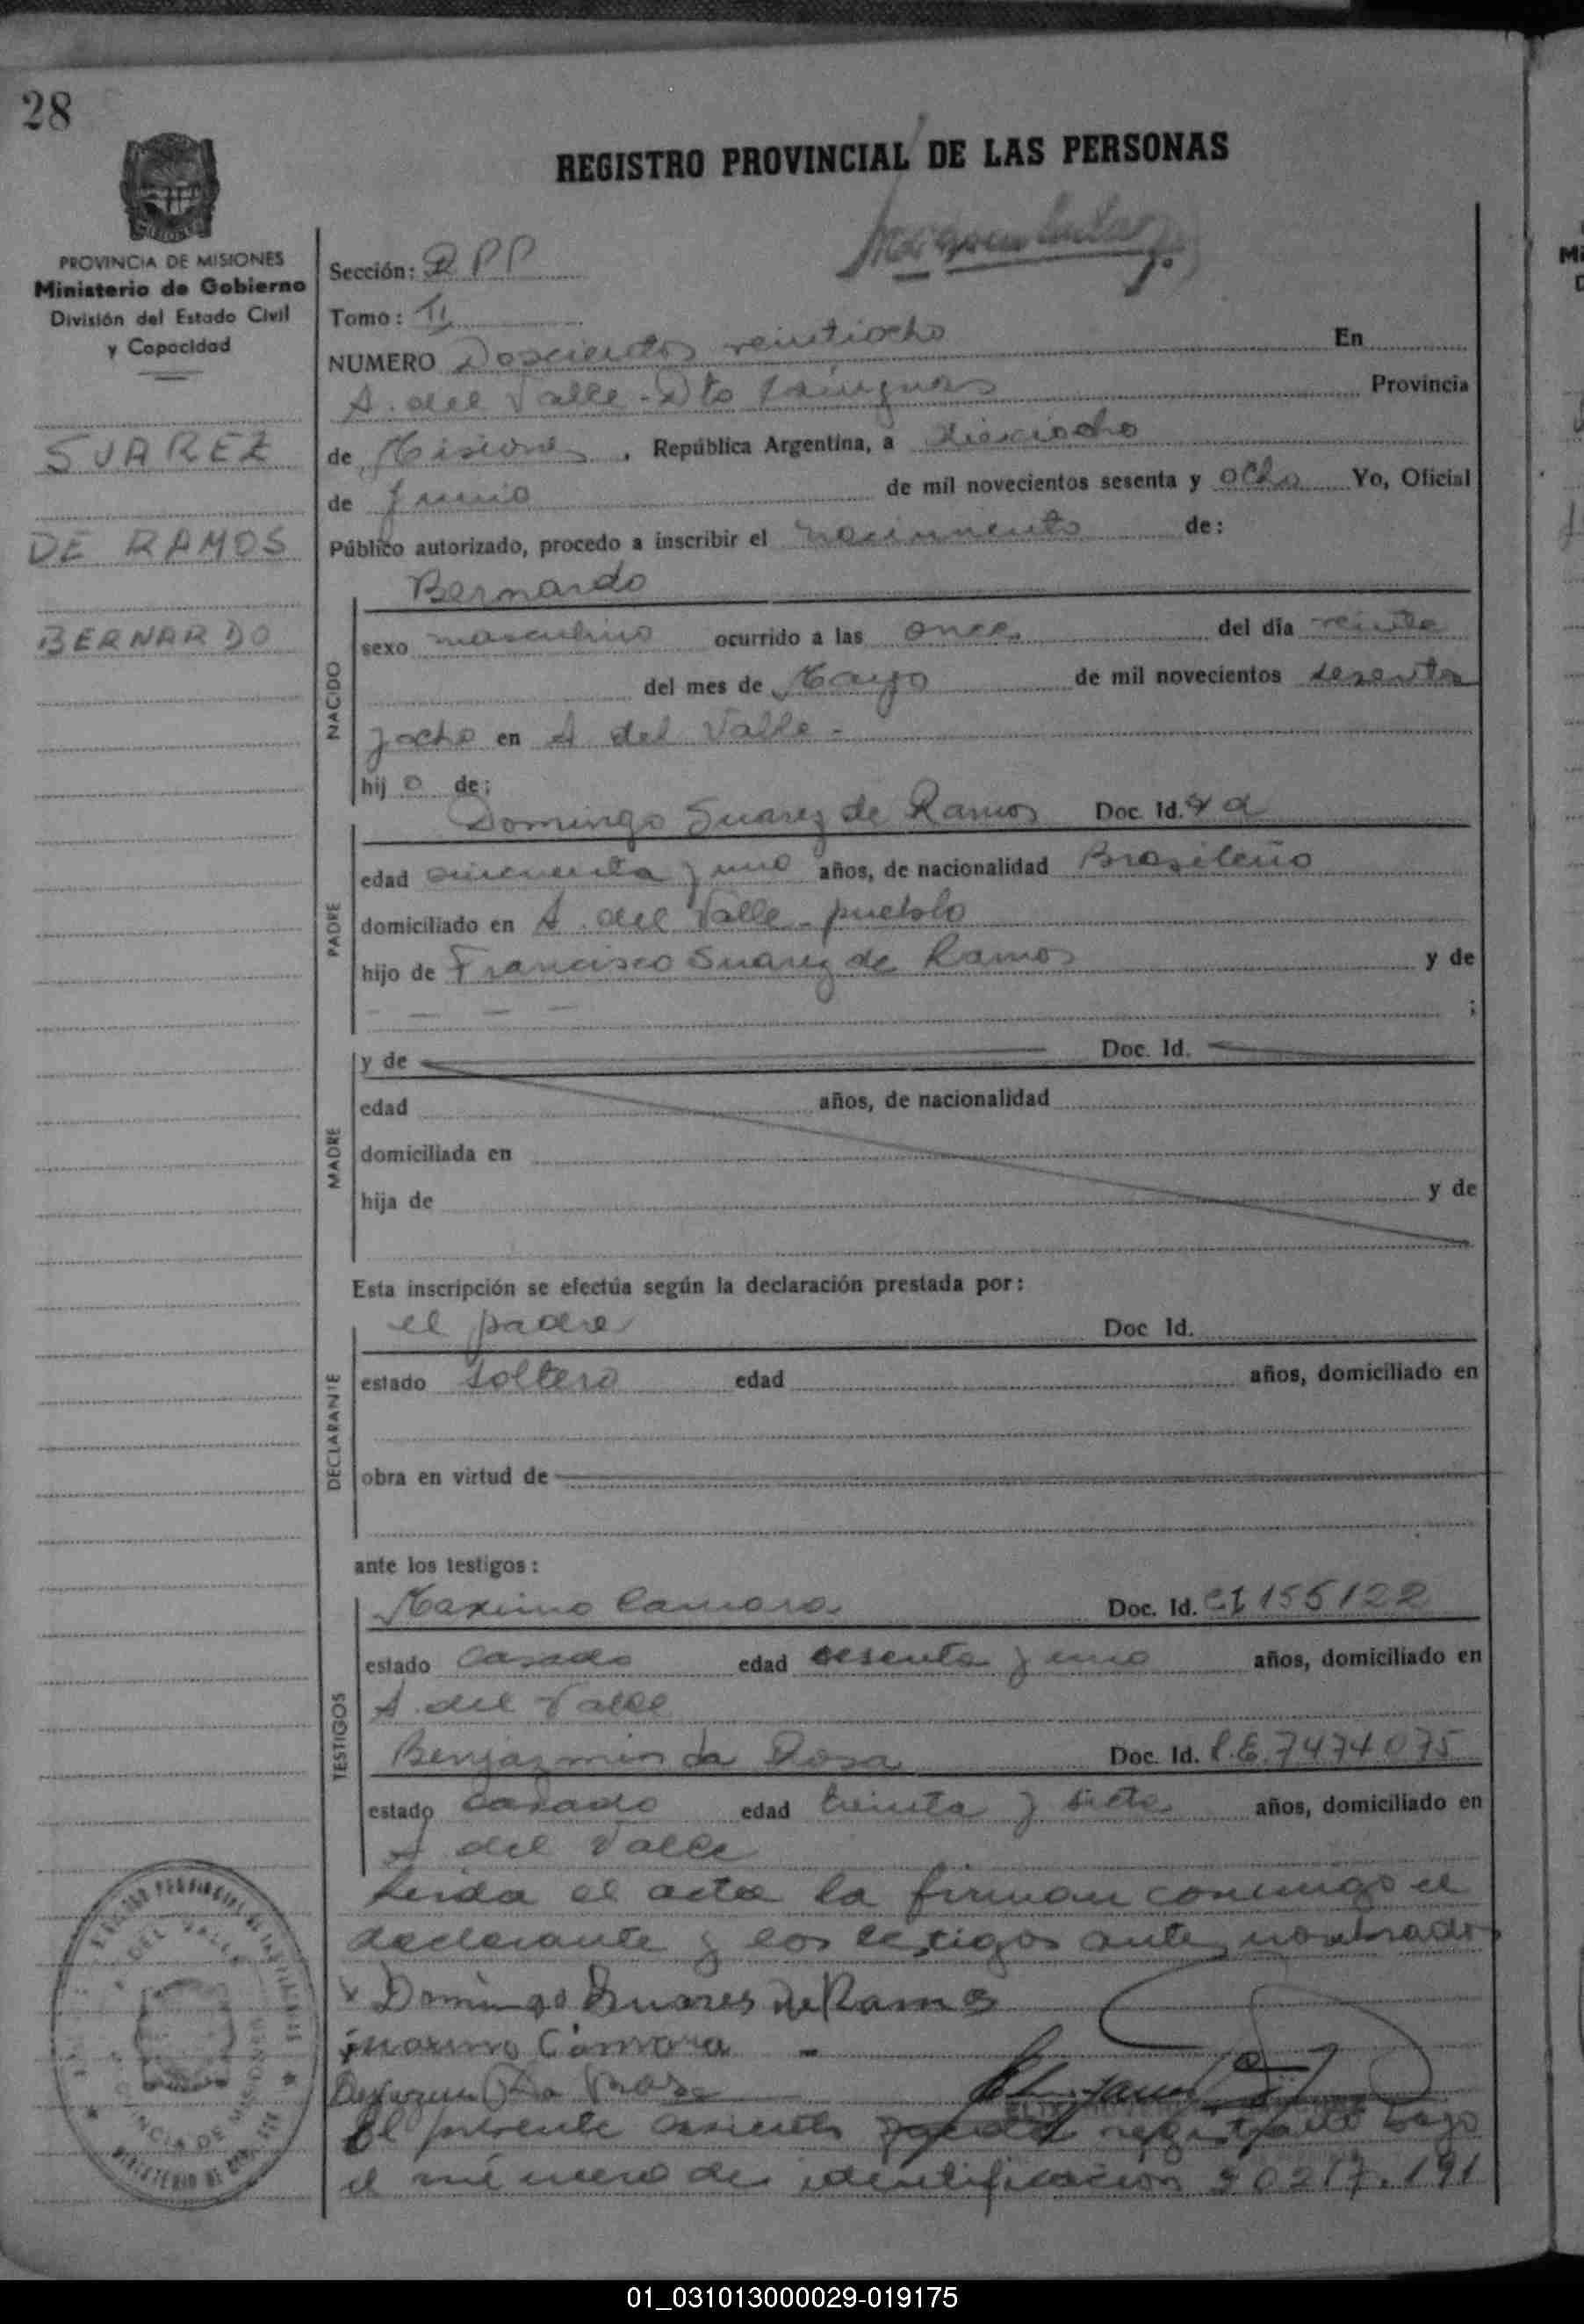 28
REGISTRO PROVINCIAL DE LAS PERSONAS
PROVINCIA DE MISIONES
Ministerio de Gobierno
División del Estado Civil
y Capacidad
SUAREZ
DE RAMOS
BERNARDO
Sección: RPP
Tomo: II
NUMERO Doscientos veintiocho En
A. del Valle - Dto Cainguas Provincia
de Misiones, República Argentina, a dieciocho
de Junio de mil novecientos sesenta y ocho Yo, Oficial
Público autorizado, procedo a inscribir el nacimiento de:
Bernardo
NACIDO
sexo masculino ocurrido a las once del día veinte
del mes de Mayo de mil novecientos sesenta
y ocho en A del Valle -
hijo de:
Domingo Suarez de Ramos Doc. Id.
PADRE
edad cincuenta y uno años, de nacionalidad Brasileño
domiciliado en A. del Valle - pueblo
hijo de Francisco Suarez de Ramos y de
- - - - ;
MADRE
y de Doc. Id.
edad años, de nacionalidad
domiciliada en
hija de y de
Esta inscripción se efectúa según la declaración prestada por:
el padre Doc Id.
DECLARANTE
estado soltero edad años, domiciliado en
obra en virtud de
ante los testigos:
Maximo Camara Doc. Id. CI 155122
TESTIGOS
estado casado edad sesenta y uno años, domiciliado en
A. del Valle
Benjazmin da Rosa Doc. Id. L.E. 7474075
estado casado edad treinta y siete años, domiciliado en
A del Valle
Leida el acta la firman conmigo el
declarante y los testigos ante nombrados
x Domingo Suares De Ramos
maximo Camara -
Da Rosa
El presente asiento queda registrado bajo
el número de identificacion 20217.191
01_031013000029-019175